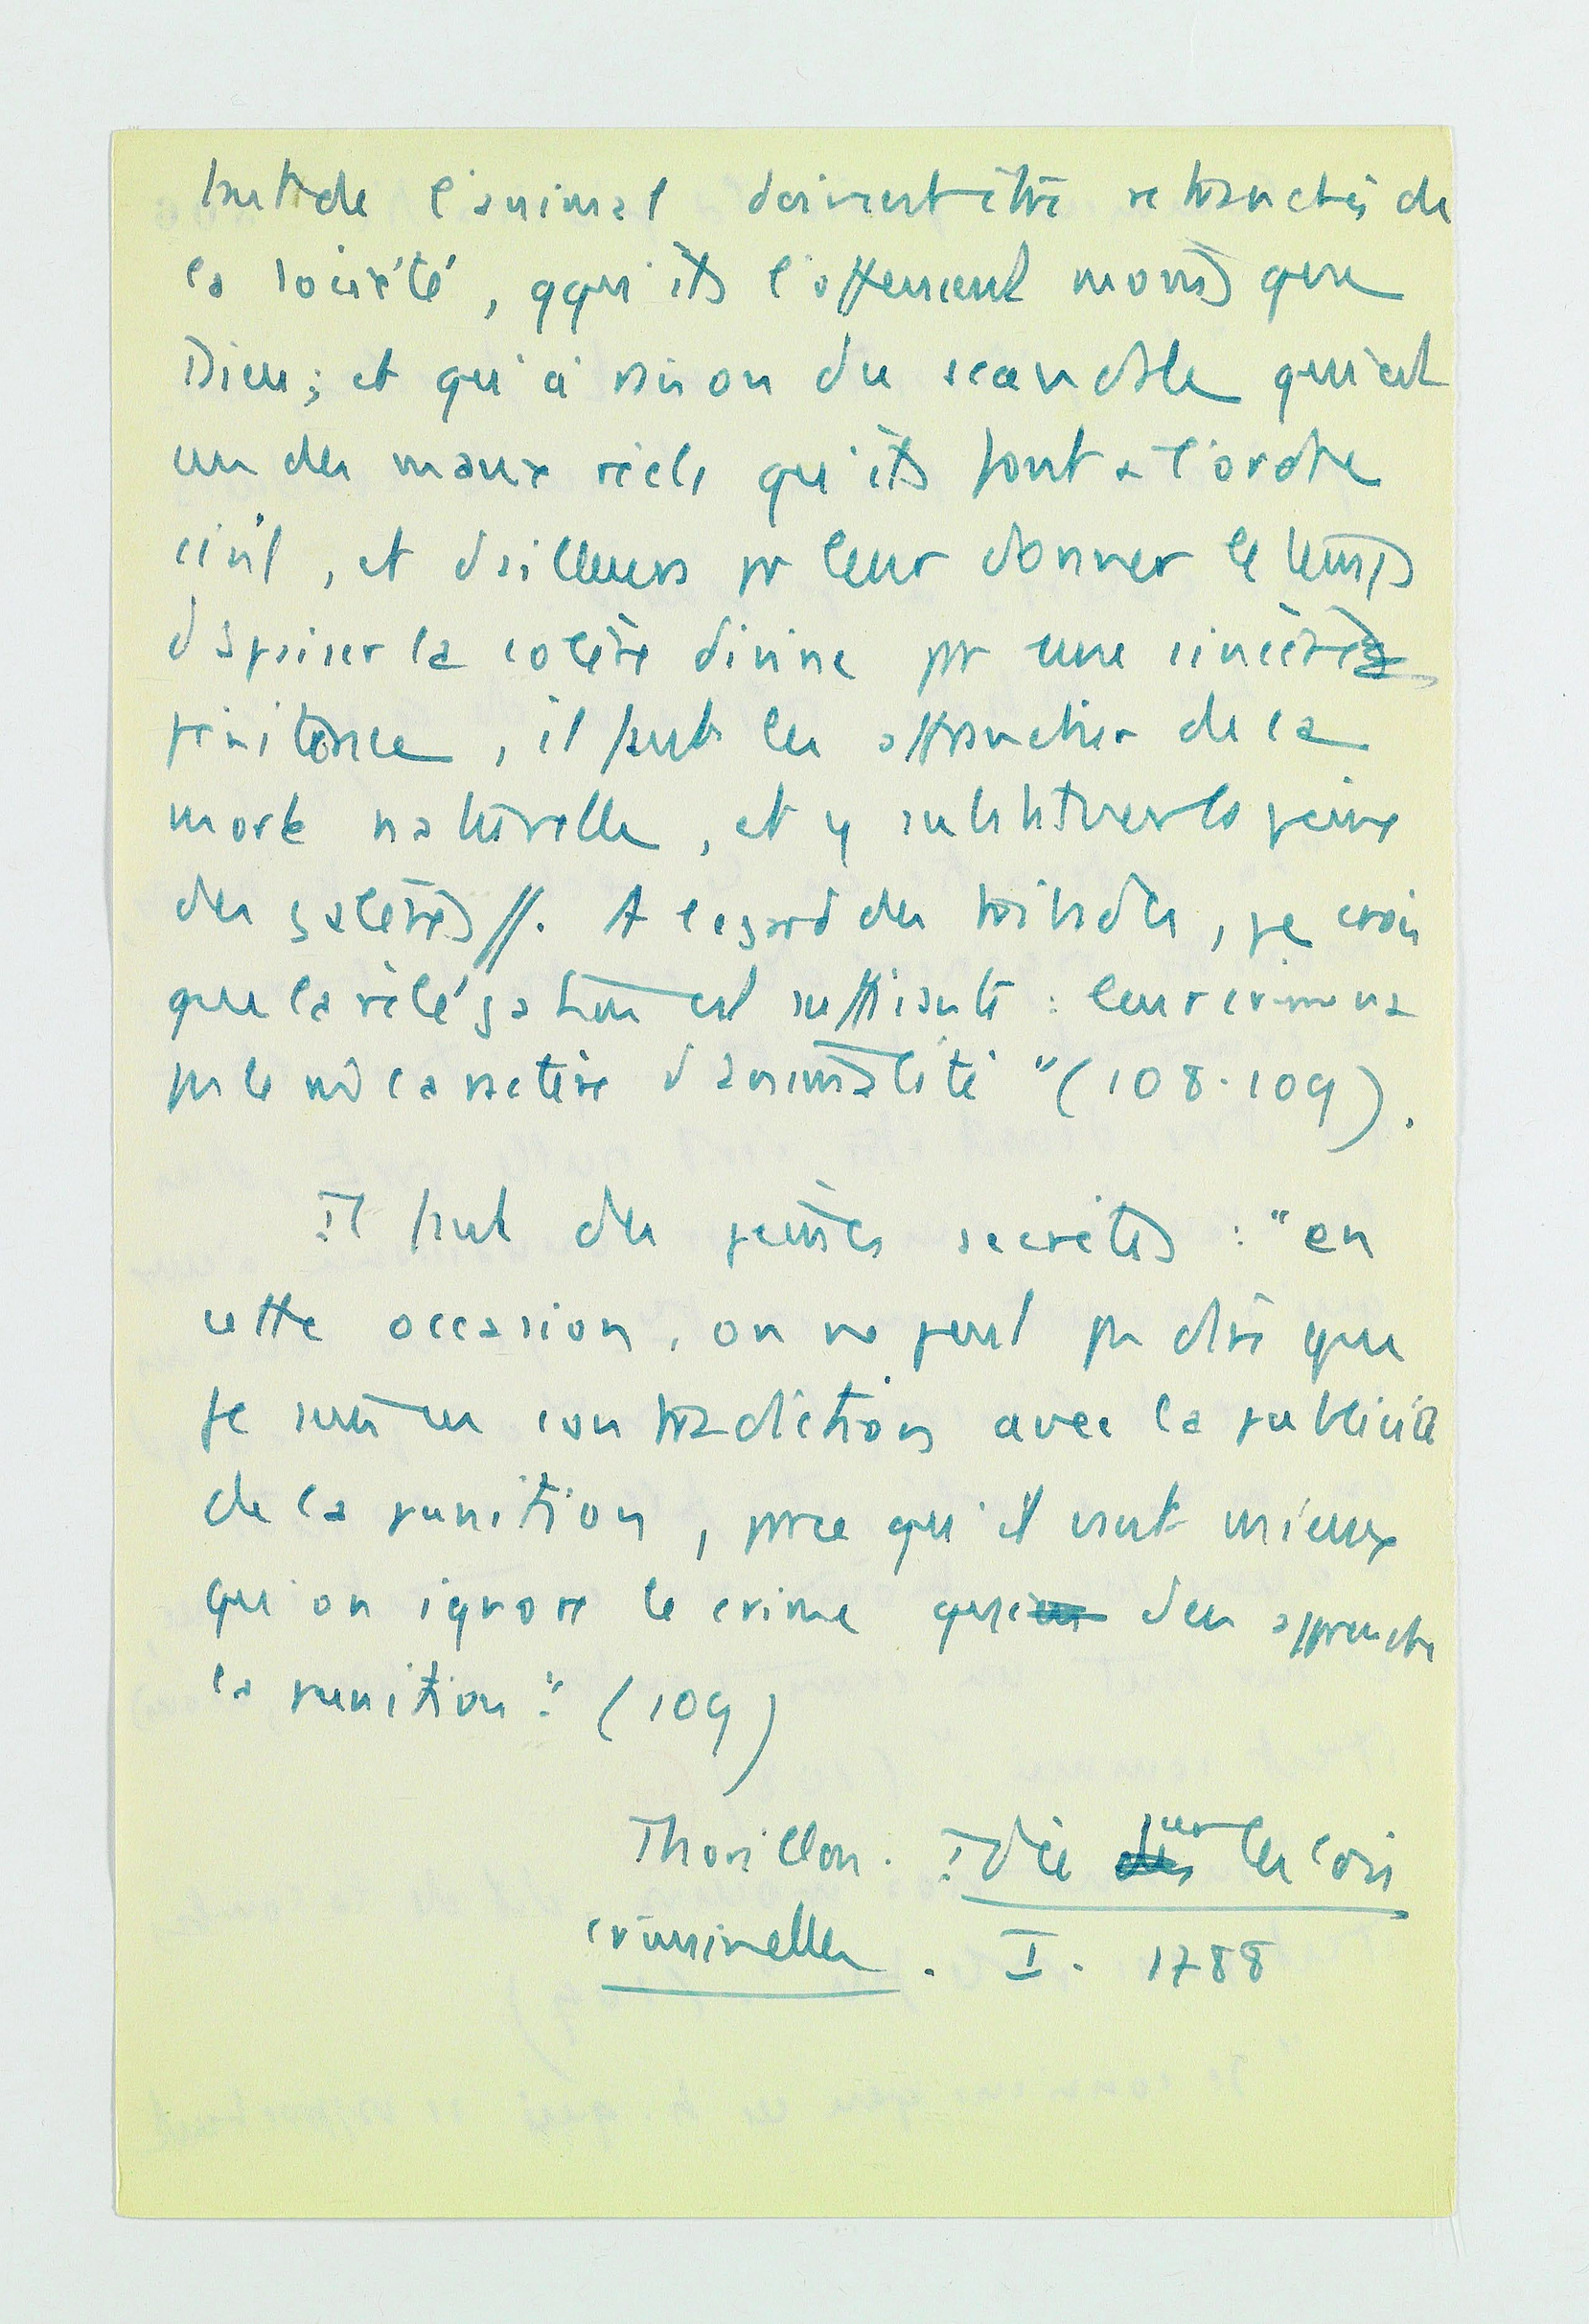 brute de l'animal doivent être retranchés de
la société, qqu'ils l'offensent moins que
Dieu ; et qu'à raison du scandale qui est
un des maux réels qu'ils font à l'ordre
civil, et d'ailleurs pr leur donner le temps
d'apaiser la colère divine pr une sincère
pénitence, il faut les arracher de la
mort naturelle, et y substituer la peine
des galères //. A l'égard des tribades, je crois
que la relégation est suffisante : leur crime n'a
pas le mê caractère d'animalité " (108-109).
Il faut des peines secrètes : "en
cette occasion, on ne peut pas dire que
je suis en contradiction avec la publicité
de la punition, parce qu'il vaut mieux
qu'on ignore le crime que d'en apprendre
la punition." (109)
Thorillon. Idée sur les lois
criminelles. I. 1788